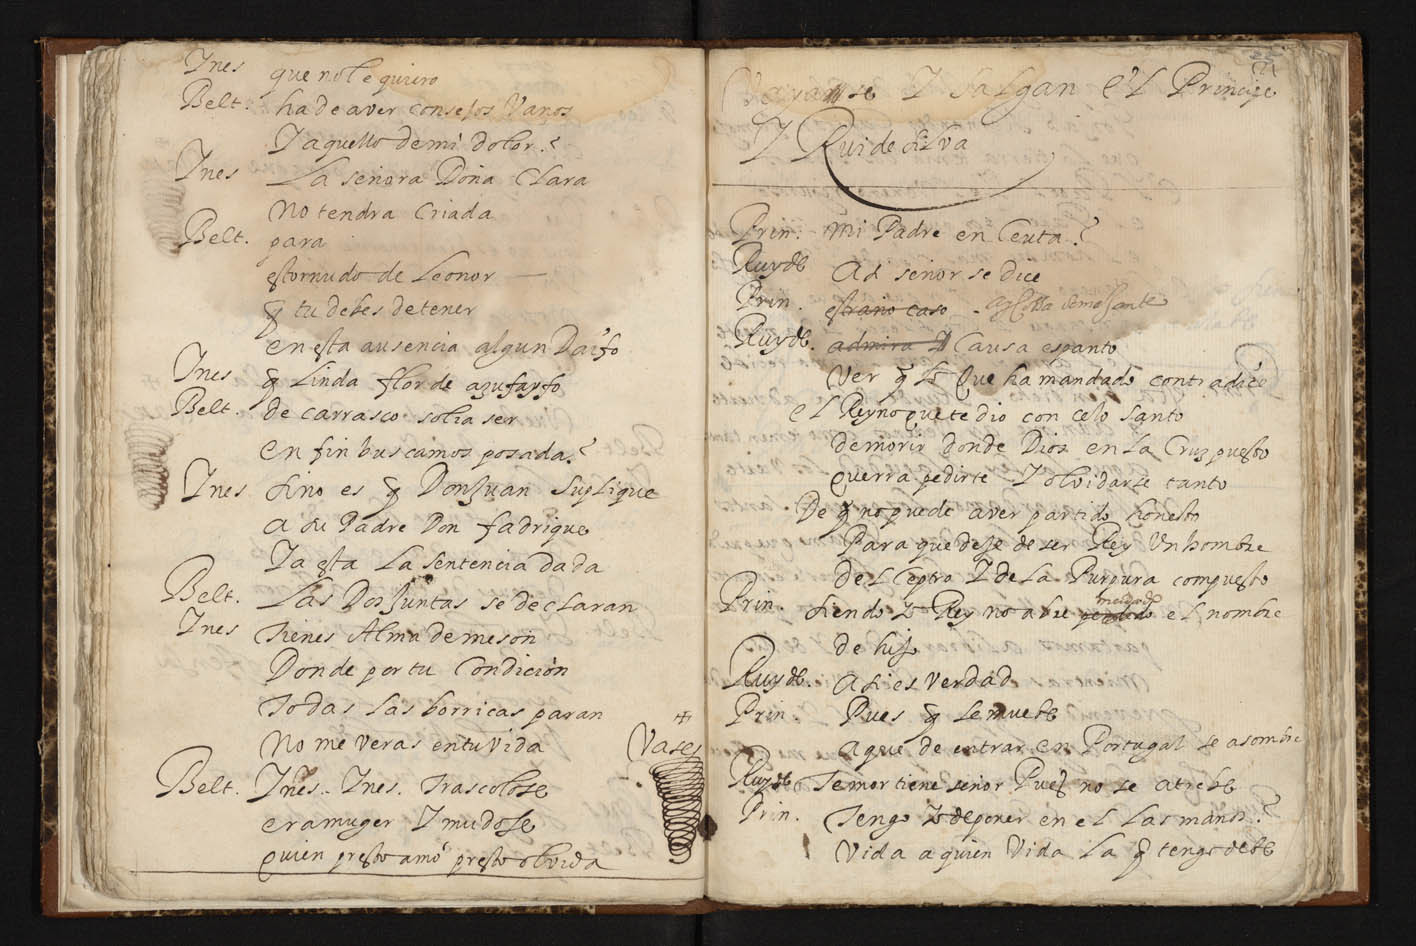 Ines que no le quiero
Belt. ha de aver consejos Vanos
Y aquello de mi dolor?
Ines La señora Doña Clara
No tendra Criada
Belt. para
estornudo de Leonor
q tu debes detener
en esta ausencia algun Daifo
Ines q Linda flor de azufaifo
Belt. de carrasco solia ser
en fin buscamos posada?
Ines Sino es q Don Juan Suplique
a su Padre Don fadrique
Ya esta La sentencia dada
Belt. Las Dos Juntas se declaran
Ines tienes Alma de meson
Donde por tu Condicion
todas las borricas paran
No me veras en tu vida Vase
Belt. Ines.. Ines. trascolose
era muger Y mudose
quien presto amó presto olvida
Vayanse Y Salgan el Principe
Y Rui de Silva
Prin. Mi Padre en Ceuta?
Ruy de Asi señor se dice
Prin. estraño caso
Ruy de. admira Y Causa espanto
Ver q lo Que ha mandado contradice
el Reyno que te dio con celo santo
de morir donde Dios en la Cruz puesto
querra pedirte Y olvidarse tanto
De q no puede aver partido honesto
Para que deje de ser Rey Un hombre
del Ceptro Y de la Purpura compuesto
Prin. Siendo Yo Rey no a de
mudado
perdido el nombre
de hijo
Ruy de. asi es verdad
Prin. Pues q le muebe
a que de entrar en Portugal se asombre
Ruy de temor tiene señor Pues no se atrebe
Prin. Tengo Yo de poner en el las manos?
Vida a quien Vida La q tengo debe